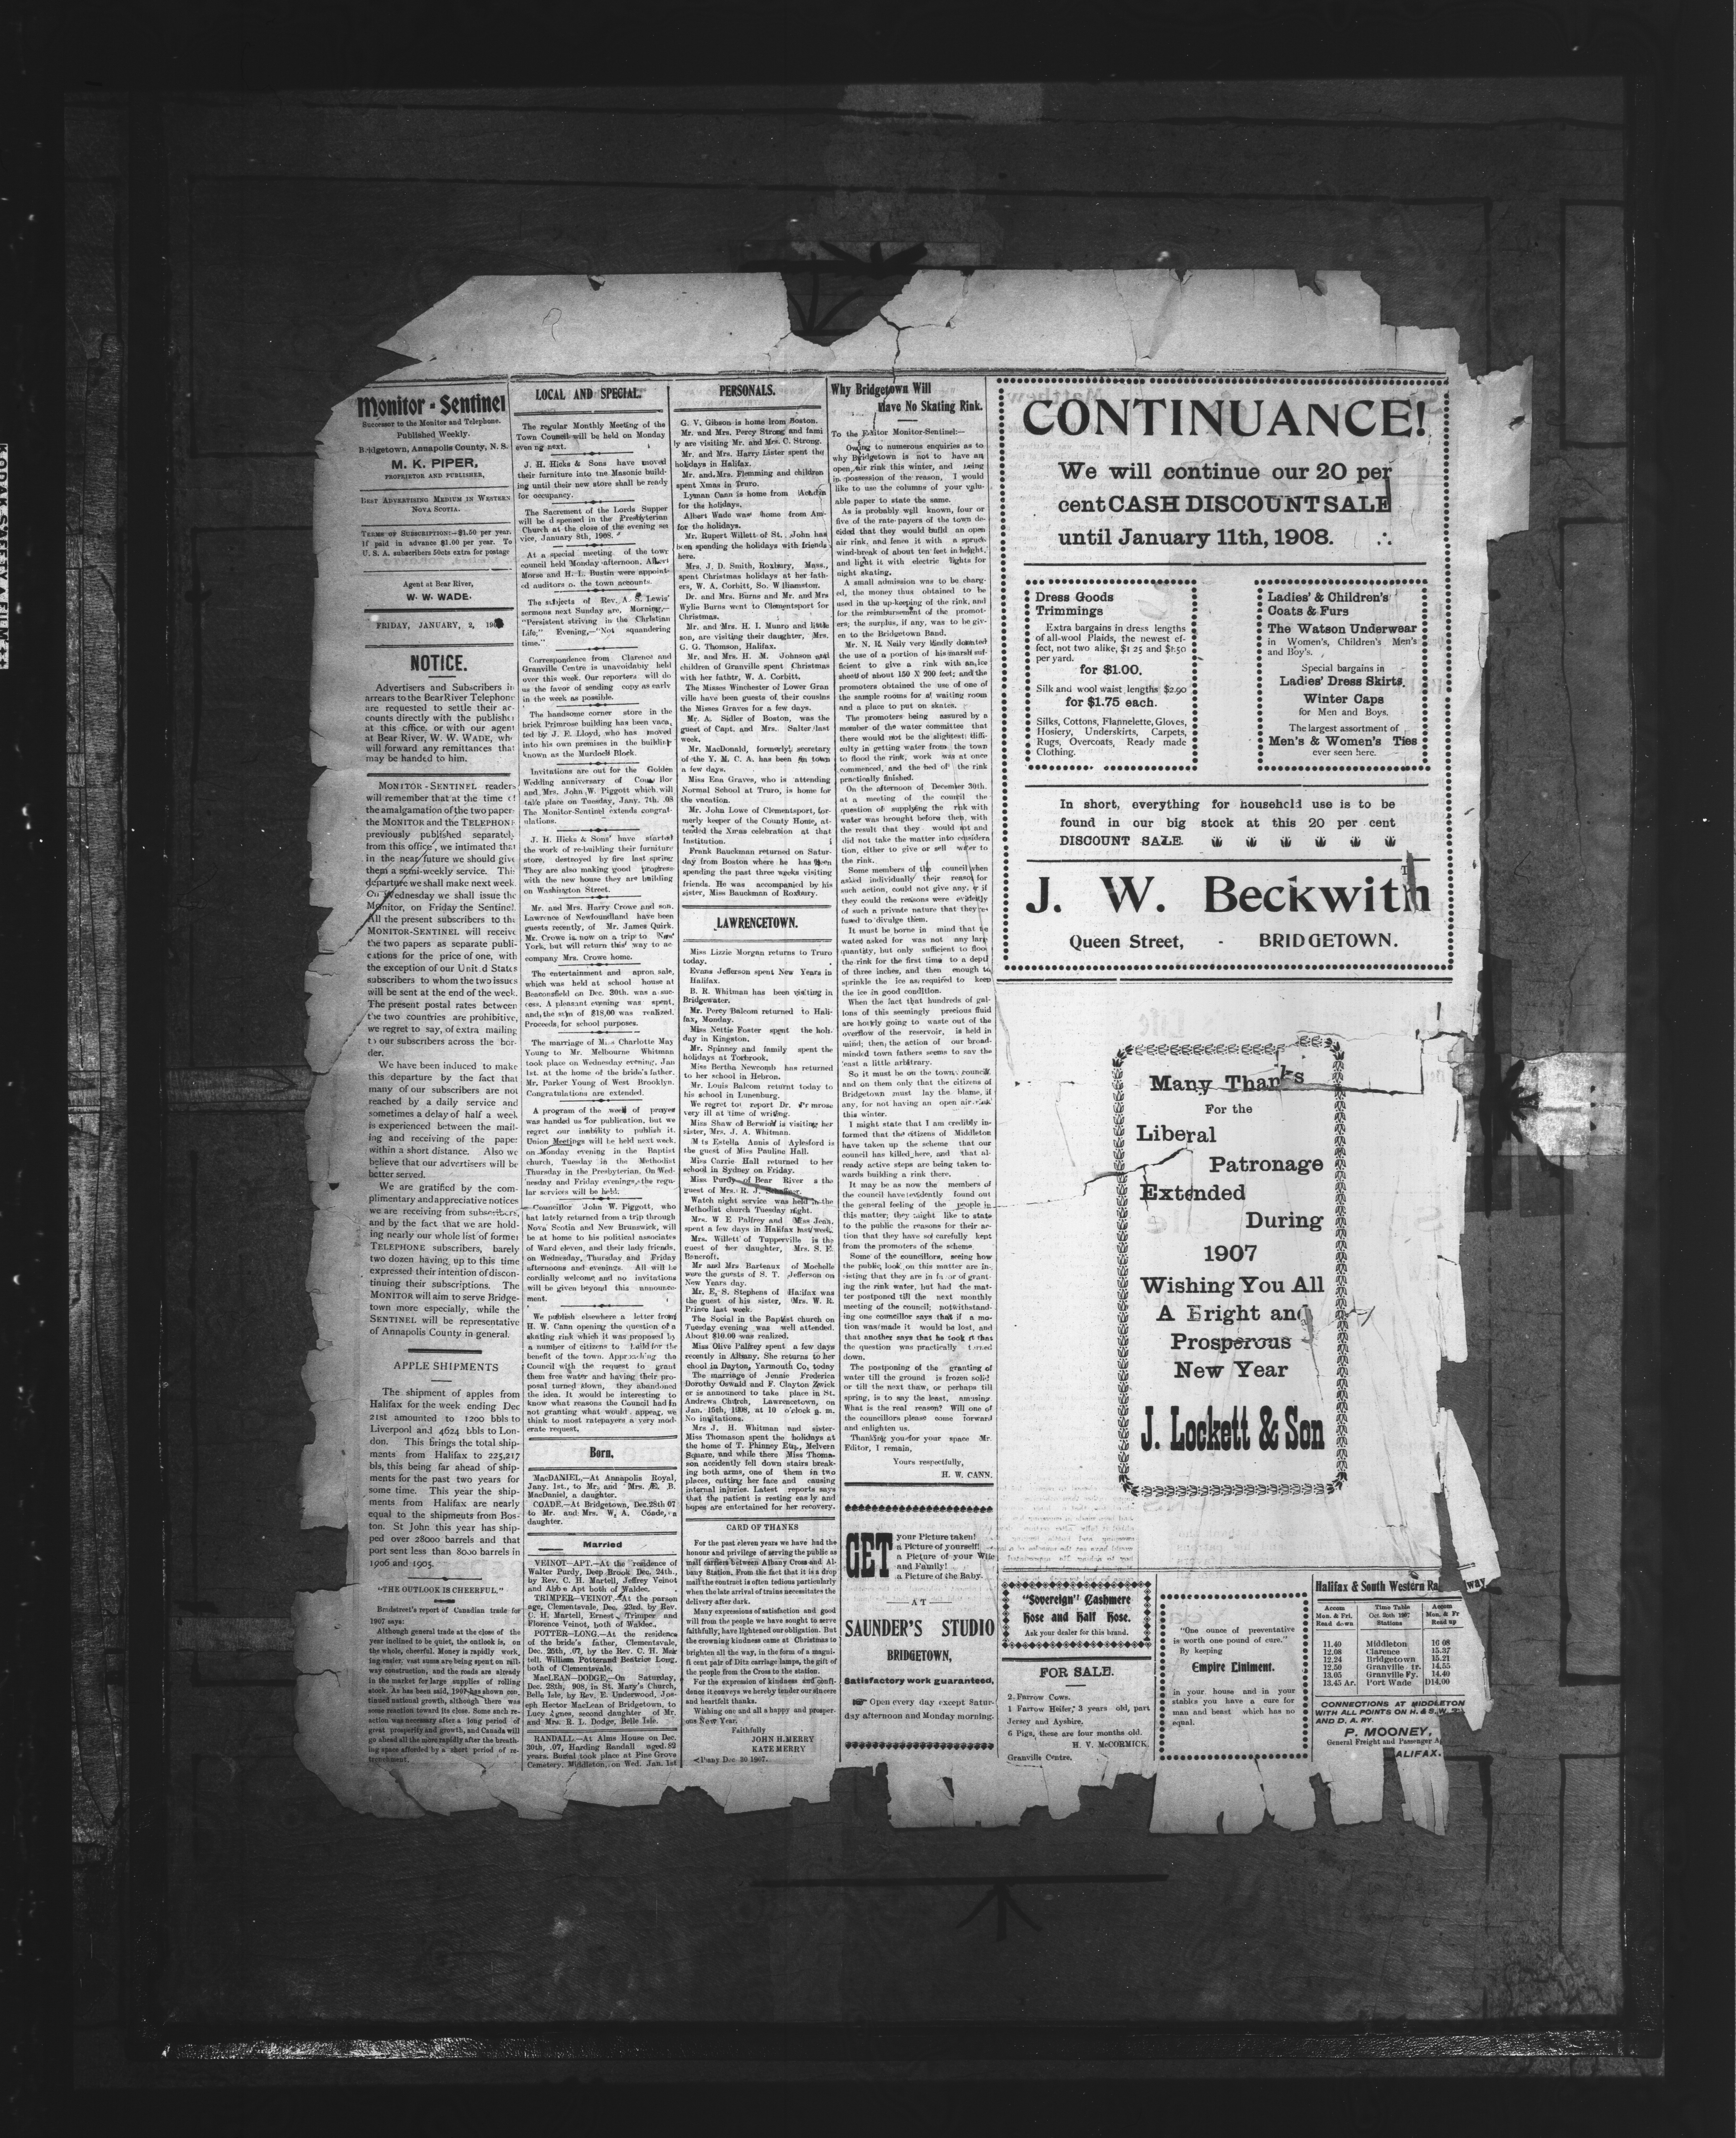 Monitor-Sentinel
Successor to the Monitor and Telephone.
Published Weekly.
Bridgetown, Annapolis County, N. S.
M. K. PIPER,
PROPRIETOR AND PUBLISHER,
BEST ADVERTISING MEDIUM IN WESTERN
NOVA SCOTIA.
TERMS OF SUBSCRIPTION:—$1.50 per year.
if paid in advance $1.00 per year. To
U. S. A. subscribers 50cts extra for postage
Agent at Bear River,
W. W. WADE.
FRIDAY, JANUARY, 2,
NOTICE.
Advertisers and Subscribers in
arrears to the Bear River Telephone
are requested to settle their ac-
counts directly with the publishe
at this office, or with our agent
at Bear River, W. W. WADE, wh
will forward any remittances that
may be handed to him.
MONITOR-SENTINEL readers
will remember that at the time of
the amalgamation of the two paper
the MONITOR and the TELEPHONE
previously published separately
from this office, we intimated that
in the near future we should give
them a semi-weekly service. This
departure we shall make next week.
On Wednesday we shall issue the
Monitor, on Friday the Sentinel.
All the present subscribers to the
MONITOR-SENTINEL will receive
the two papers as separate publi-
cations for the price of one, with
the exception of our Unit.d States
subscribers to whom the two issues
will be sent at the end of the week.
The present postal rates between
the two countries are prohibitive,
we regret to say, of extra mailing
to our subscribers across the bor-
der.
We have been induced to make
this departure by the fact that
many of our subscribers are not
reached by a daily service and
sometimes a delay of half a week
is experienced between the mail-
ing and receiving of the paper
within a short distance. Also we
believe that our advertisers will be
better served.
We are gratified by the com-
plimentary and appreciative notices
we are receiving from subscribers,
and by the fact that we are hold-
ing nearly our whole list of former
TELEPHONE subscribers, barely
two dozen having, up to this time
expressed their intention of discon-
tinuing their subscriptions. The
MONITOR will aim to serve Bridge-
town more especially, while the
SENTINEL will be representative
of Annapolis County in general.
APPLE SHIPMENTS
The shipment of apples from
Halifax for the week ending Dec
21st amounted to 1200 bbls to
Liverpool and 4624 bbls to Lon-
don. This brings the total ship-
ments from Halifax to 225,217
bbls, this being far ahead of ship-
ments for the past two years for
some time. This year the ship-
ments from Halifax are nearly
equal to the shipmeuts from Bos-
ton. St John this year has ship-
ped over 28000 barrels and that
port sent less than 8000 barrels in
1906 and 1905.
"THE OUTLOOK IS CHEERFUL."
Bradstreet's report of Canadian trade for
1907 says:
Although general trade at the close of the
year inclined to be quiet, the outlook is, on
the whole, cheerful. Money is rapidly work
ing easier, vast sums are being spent on rail-
way construction, and the roads are already
in the market for large supplies of rolling
stock. As has been said, 1907 has shown con-
tinued national growth, although there was
some reaction toward its close. Some such re-
action was necessary after a long period of
great prosperity and growth, and Canada will
go ahead all the more rapidly after the breath-
ing space afforded by a short period of re-
trenchment.
LOCAL AND SPECIAL.
The regular Monthly Meeting of the
Town Council will be held on Monday
evening next.
J. H. Hicks & Sons have moved
their furniture into tne Masonic build-
ing until their new store shall be ready
for occupancy.
The Sacrement of the Lords Supper
will be d spensed in the Presbyterian
Church at the close of the evening ser
vice, January 8th, 1908.
At a special meeting of the town
council held Monday afternoon, Albert
Morse and H. L. Bustin were appoint-
ed auditors o. the town accounts.
The subjects of Rev. A. S. Lewis'
sermons next Sunday are, Morning,—
"Persistent striving in the Christian
Life," Evening,—"Not squandering
time."
Correspondence from Clarence and
Granville Centre is unavoidably held
over this week. Our reporters will do
us the favor of sending copy as early
in the week as possible.
The handsome corner store in the
brick Primrose building has been vaca,
ted by J. E. Lloyd, who has moved
into his own premises in the building
known as the Murdoch Block.
Invitations are out for the Golden
Wedding anniversary of Councillor
and Mrs. John W. Piggott which will
take place on Tuesday, Jany. 7th. .08
The Monitor-Sentinel extends congrat-
ulations.
J. H. Hicks & Sons' have started
the work of re-building their furniture
store, destroyed by fire last spring
They are also making good progress
with the new house they are building
on Washington Street.
Mr. and Mrs. Harry Crowe and son.
Lawrence of Newfoundland have been
guests recently, of Mr. James Quirk.
Mr. Crowe is now on a trip to New
York, but will return this way to ac
company Mrs. Crowe home.
The entertainment and apron sale,
which was held at school house at
Beaconsfield on Dec. 30th. was a suc-
cess. A pleasant evening was spent,
and the sum of $18,00 was realized.
Proceeds, for school purposes.
The marriage of Miss Charlotte May
Young to Mr. Melbourne Whitman
took place on Wednesday evening, Jan
1st. at the home of the bride's father.
Mr. Parker Young of West Brooklyn.
Congratulations are extended.
A program of the week of prayer
was handed us for publication, but we
regret our inability to publish it.
Union Meetings will be held next week,
on Monday evening in the Baptist
church, Tuesday in the Methodist
Thursday in the Presbyterian. On Wed-
nesday and Friday evenings, the regu-
lar services will be held.
Councillor John W. Piggott, who
hat lately returned from a trip through
Nova Scotia and New Brunswick, will
be at home to his political associates
of Ward eleven, and their lady friends,
on Wednesday, Thursday and Friday
afternoons and evenings. All will be
cordially welcome and no invitations
will be given beyond this announce-
ment.
We publish elsewhere a letter from
H. W. Cann opening the question of a
skating rink which it was proposed by
a number of citizens to build for the
benefit of the town. Approaching the
Council with the request to grant
them free water and having their pro-
posal turned down, they abandoned
the idea. It would be interesting to
know what reasons the Council had in
not granting what would appear, we
think to most ratepayers a very mod-
erate request.
Born.
MacDANIEL,—At Annapolis Royal,
Jany. 1st., to Mr. and Mrs. Æ. B.
MacDaniel, a daughter.
COADE.—At Bridgetown, Dec.28th 07
to Mr. and Mrs. W. A. Coade, a
daughter.
Married
VEINOT—APT.—At the residence of
Walter Purdy, Deep Brook Dec. 24th.,
by Rev. C. H. Martell, Jeffrey Veinot
and Abbie Apt both of Waldec.
TRIMPER—VEINOT.—At the parson
age, Clementsvale, Dec. 23rd. by Rev.
C. H. Martell, Ernest Trimper and
Florence Veinot, both of Waldec.
POTTER—LONG.—At the residence
of the bride's father, Clementvale,
Dec. 25th, .07, by the Rev. C. H. Mar
tell, William Potter and Beatrice Long,
both of Clementsvale.
MacLEAN—DODGE,—On Saturday,
Dec. 28th, 908, in St. Mary's Church,
Belle Isle, by Rev. E. Underwood, Jos-
eph Hector MacLean of Bridgetown, to
Lucy Agnes, second daughter of Mr.
and Mrs. R. L. Dodge, Belle Isle.
RANDALL—At Alms House on Dec.
30th, .07, Harding Randall aged 82
years. Burial took place at Pine Grove
Cemetery, Middleton, on Wed. Jan. 1st
PERSONALS.
G. V. Gibson is home from Boston.
Mr. and Mrs. Percy Strong and fami
ly are visiting Mr. and Mrs. C. Strong.
Mr. and Mrs. Harry Lister spent the
holidays in Halifax.
Mr. and Mrs. Flemming and children
spent Xmas in Truro.
Lyman Cann is home from Acadia
for the holidays.
Albert Wade was home from Am-
for the holidays.
Mr. Rupert Willett of St. John has
been spending the holidays with friends
here.
Mrs. J. D. Smith, Roxbury, Mass.,
spent Christmas holidays at her fath-
ers, W. A. Corbitt, So. Williamston.
Dr. and Mrs. Burns and Mr. and Mrs
Wylie Burns went to Clementsport for
Christmas.
Mr. and Mrs. H. I. Munro and little
son, are visiting their daughter, Mrs.
G. G. Thomson, Halifax.
Mr. and Mrs. H. M. Johnson and
children of Granville spent Christmas
with her father, W. A. Corbitt.
The Misses Winchester of Lower Gran
ville have been guests of their cousins
the Misses Graves for a few days.
Mr. A. Sidler of Boston, was the
guest of Capt. and Mrs. Salter last
week.
Mr. MacDonald, formerly secretary
of the Y. M. C. A. has been in town
a few days.
Miss Ena Graves, who is attending
Normal School at Truro, is home for
the vacation.
Mr. John Lowe of Clementsport, for-
merly keeper of the County Home, at-
tended the Xmas celebration at that
Institution.
Frank Bauckman returned on Satur-
day from Boston where he has been
spending the past three weeks visiting
friends. He was accompanied by his
sister, Miss Bauckman of Roxbury.
LAWRENCETOWN.
Miss Lizzie Morgan returns to Truro
today.
Evans Jefferson spent New Years in
Halifax.
B. R. Whitman has been visiting in
Bridgewater.
Mr. Percy Balcom returned to Hali-
fax, Monday.
Miss Nettie Foster spent the hol-
day in Kingston.
Mr. Spinney and family spent the
holidays at Torbrook.
Miss Bertha Newcomb has returned
to her school in Hebron.
Mr. Louis Balcom returnt today to
his school in Lunenburg.
We regret to report Dr. Primrose
very ill at time of writing.
Miss Shaw of Berwick is visiting her
sister, Mrs. J. A. Whitman.
Miss Estella Annis of Aylesford is
the guest of Miss Pauline Hall.
Miss Carrie Hall returned to her
school in Sydney on Friday.
Miss Purdy of Bear River is the
guest of Mrs. R. J.
Watch night service was held in the
Methodist church Tuesday night.
Mrs. W E Palfrey and Miss Jean,
spent a few days in Halifax last week.
Mrs. Willett of Tupperville is the
guest of her daughter, Mrs. S. E.
Bencroft.
Mr and Mrs Barteaux of Mochelle
were the guests of S. T. Jefferson on
New Years day.
Mr. E. S. Stephens of Halifax was
the guest of his sister, Mrs. W. R.
Prince last week.
The Social in the Baptist church on
Tuesday evening was well attended.
About $10.00 was realized.
Miss Olive Palfrey spent a few days
recently in Albany. She returns to her
chool in Dayton, Yarmouth Co, today
The marriage of Jennie Frederica
Dorothy Oswald and F. Clayton Zwick
er is announced to take place in St.
Andrews Church, Lawrencetown, on
Jan. 15th, 1908, at 10 o'clock a. m.
No invitations.
Mrs J. H. Whitman and sister-
Miss Thomason spent the holidays at
the home of T. Phinney Esq., Melvern
Square, and while there Miss Thoma-
son accidently fell down stairs break-
ing both arms, one of them in two
places, cutting her face and causing
internal injuries. Latest reports says
that the patient is resting easly and
hopes are entertained for her recovery.
CARD OF THANKS
For the past eleven years we have had the
honour and privilege of serving the public as
mail carriers between Albany Cross and Al-
bany Station. From the fact that it is a drop
mail the contract is often tedious particularly
when the late arrival of trains necessitates the
delivery after dark.
Many expressions of satisfaction and good
will from the people we have sought to serve
faithfully, have lightened our obligation. But
the crowning kindness came at Christmas to
brighten all the way, in the form of a magni-
ficent pair of Ditz carriage lamps, the gift of
the people from the Cross to the station.
For the expression of kindness and confi-
dence it conveys we hereby tender our sincere
and heartfelt thanks.
Wishing one and all a happy and prosper-
ous New Year.
Faithfully
JOHN H. MERRY
KATE MERRY
Dec 30 1907.
Why Bridgetown Will
Have No Skating Rink.
To the Editor Monitor-Sentinel:—
Owing to numerous enquiries as to
why Bridgetown is not to have an
open air rink this winter, and being
in possession of the reason, I would
like to use the columns of your valu-
able paper to state the same.
As is probably well known, four or
five of the rate-payers of the town de-
cided that they would build an open
air rink, and fence it with a spruce
wind-break of about ten feet in height,
and light it with electric lights for
night skating.
A small admission was to be charg-
ed, the money thus obtained to be
used in the up-keeping of the rink, and
for the reimbursement of the promot-
ers; the surplus, if any, was to be giv-
en to the Bridgetown Band.
Mr. N. R. Neily very kindly donated
the use of a portion of his marsh suf-
ficient to give a rink with an ice
sheet of about 150 X 200 feet; and the
promoters obtained the use of one of
the sample rooms for a waiting room
and a place to put on skates.
The promoters being assured by a
member of the water committee that
there would not be the slightest diffi-
culty in getting water from the town
to flood the rink, work was at once
commenced, and the bed of the rink
practically finished.
On the afternoon of December 30th.
at a meeting of the council the
question of supplying the rink with
water was brought before them, with
the result that they would not and
did not take the matter into considera
tion, either to give or sell water to
the rink.
Some members of the council when
asked individually their reason for
such action, could not give any, or if
they could the reasons were evidently
of such a private nature that they re-
fused to divulge them.
It must be borne in mind that the
water asked for was not any large
quantity, but only sufficient to flood
the rink for the first time to a depth
of three inches, and then enough to
sprinkle the ice as required to keep
the ice in good condition.
When the fact that hundreds of gal-
lons of this seemingly precious fluid
are hourly going to waste out of the
overflow of the reservoir, is held in
mind; then, the action of our broad-
minded town fathers seems to say the
least a little arbitrary.
So it must be on the town council
and on them only that the citizens of
Bridgetown must lay the blame, if
any, for not having an open air rink
this winter.
I might state that I am credibly in-
formed that the citizens of Middleton
have taken up the scheme that our
council has killed here, and that al-
ready active steps are being taken to-
wards building a rink there.
It may be as now the members of
the council have evidently found out
the general feeling of the people in
this matter; they might like to state
to the public the reasons for their ac-
tion that they have so carefully kept
from the promoters of the scheme.
Some of the councillors, seeing how
the public look on this matter are in-
sisting that they are in favor of grant-
ing the rink water, but had the mat-
ter postponed till the next monthly
meeting of the council; notwithstand-
ing one councillor says that if a mo-
tion was made it would be lost, and
that another says that he took it that
the question was practically turned
down.
The postponing of the granting of
water till the ground is frozen solid
or till the next thaw, or perhaps till
spring, is to say the least, amusing.
What is the real reason? Will one of
the councillors please come forward
and enlighten us.
Thanking you for your space Mr.
Editor, I remain,
Yours respectfully,
H. W. CANN.
GET
your Picture taken!
a Picture of yourself!
a Picture of your Wife
and Family!
a Picture of the Baby.
AT
SAUNDER'S STUDIO
BRIDGETOWN,
Satisfactory work guaranteed,
Open every day except Satur-
day afternoon and Monday morning.
CONTINUANCE!
We will continue our 20 per
cent CASH DISCOUNT SALE
until January 11th, 1908.
Dress Goods
Trimmings
Extra bargains in dress lengths
of all-wool Plaids, the newest ef-
fect, not two alike, $1 25 and $1.50
per yard.
for $1.00.
Silk and wool waist lengths $2.90
for $1.75 each.
Silks, Cottons, Flannelette, Gloves,
Hosiery, Underskirts, Carpets,
Rugs, Overcoats, Ready made
Clothing.
Ladies' & Children's
Coats & Furs
The Watson Underwear
in Women's, Children's Men's
and Boy's.
Special bargains in
Ladies' Dress Skirts.
Winter Caps
for Men and Boys.
The largest assortment of
Men's & Women's Ties
ever seen here.
In short, everything for household use is to be
found in our big stock at this 20 per cent
DISCOUNT SALE.
J. W. Beckwith
Queen Street, - BRIDGETOWN.
Many Thanks
For the
Liberal
Patronage
Extended
During
1907
Wishing You All
A Bright and
Prosperous
New Year
J. Lockett & Son
"Sovereign" Cashmere
Hose and Half Hose.
Ask your dealer for this brand.
FOR SALE.
2 Farrow Cows.
1 Farrow Heifer, 3 years old, part
Jersey and Ayshire,
6 Pigs, these are four months old.
H. V. McCORMICK,
Granville Centre.
"One ounce of preventative
is worth one pound of cure."
By keeping
Empire Liniment.
in your house and in your
stables you have a cure for
man and beast which has no
equal.
Halifax & South Western Railway
Accom Time Table Accom
Mon. & Fri. Oct. 20th 1907 Mon. & Fr
Read down Stations Read up
11.40 Middleton 16 08
12.08 Clarence 15.37
12.24 Bridgetown 15.21
12.50 Granville tr. 14.55
13.05 Granville Fy. 14.40
13.45 Ar. Port Wade D14.00
CONNECTIONS AT MIDDLETON
WITH ALL POINTS ON H. & S. W.
AND D. A. RY.
P. MOONEY,
General Freight and Passenger
ALIFAX.
KODAK SAFETY A FILM